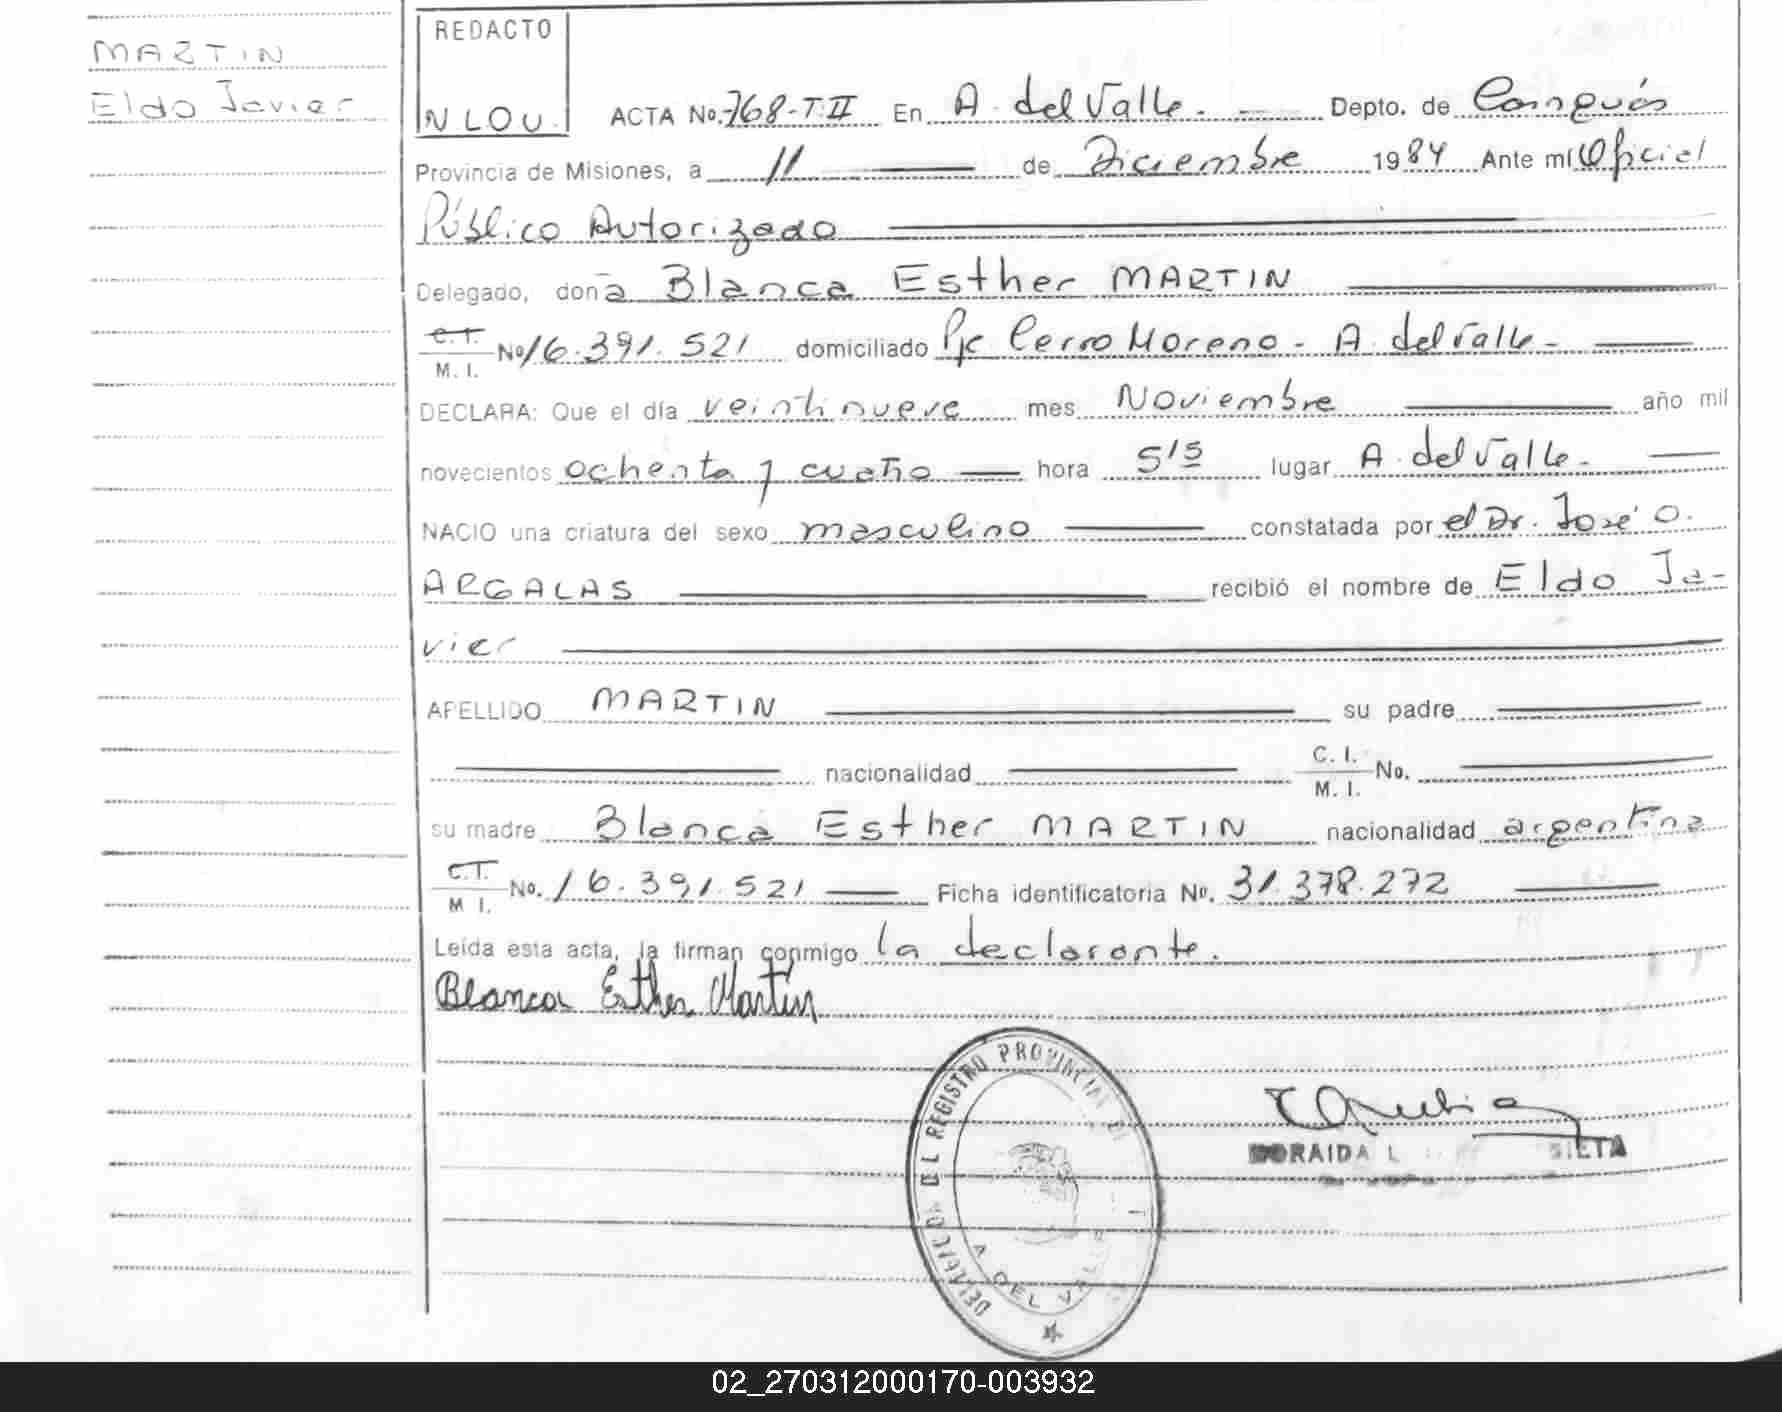 MARTIN
Eldo Javier
REDACTO
N LOU.
ACTA No. 768-T.II En A. del Valle. Depto. de Cainguás
Provincia de Misiones, a 11 de Diciembre 1984 Ante mí Oficial
Público Autorizado
Delegado, doña Blanca Esther MARTIN
C.I.
M. I. No 16.391.521 domiciliado Pje Cerro Moreno - A. del Valle -
DECLARA: Que el día veintinueve mes Noviembre año mil
novecientos ochenta y cuatro hora 5¹⁵ lugar A. del Valle.
NACIO una criatura del sexo masculino constatada por el Dr. José O.
ARGALAS recibió el nombre de Eldo Ja-
vier
APELLIDO MARTIN su padre
nacionalidad C. I.
M. I. No.
su madre Blanca Esther MARTIN nacionalidad argentina
C.I.
M I. No. 16.391.521 Ficha identificatoria No. 31.378.272
Leída esta acta, la firman conmigo la declarante.
Blanca Esther Martin
DEL REGISTRO PROVINCIAL DE
A. DEL VALLE
02_270312000170-003932